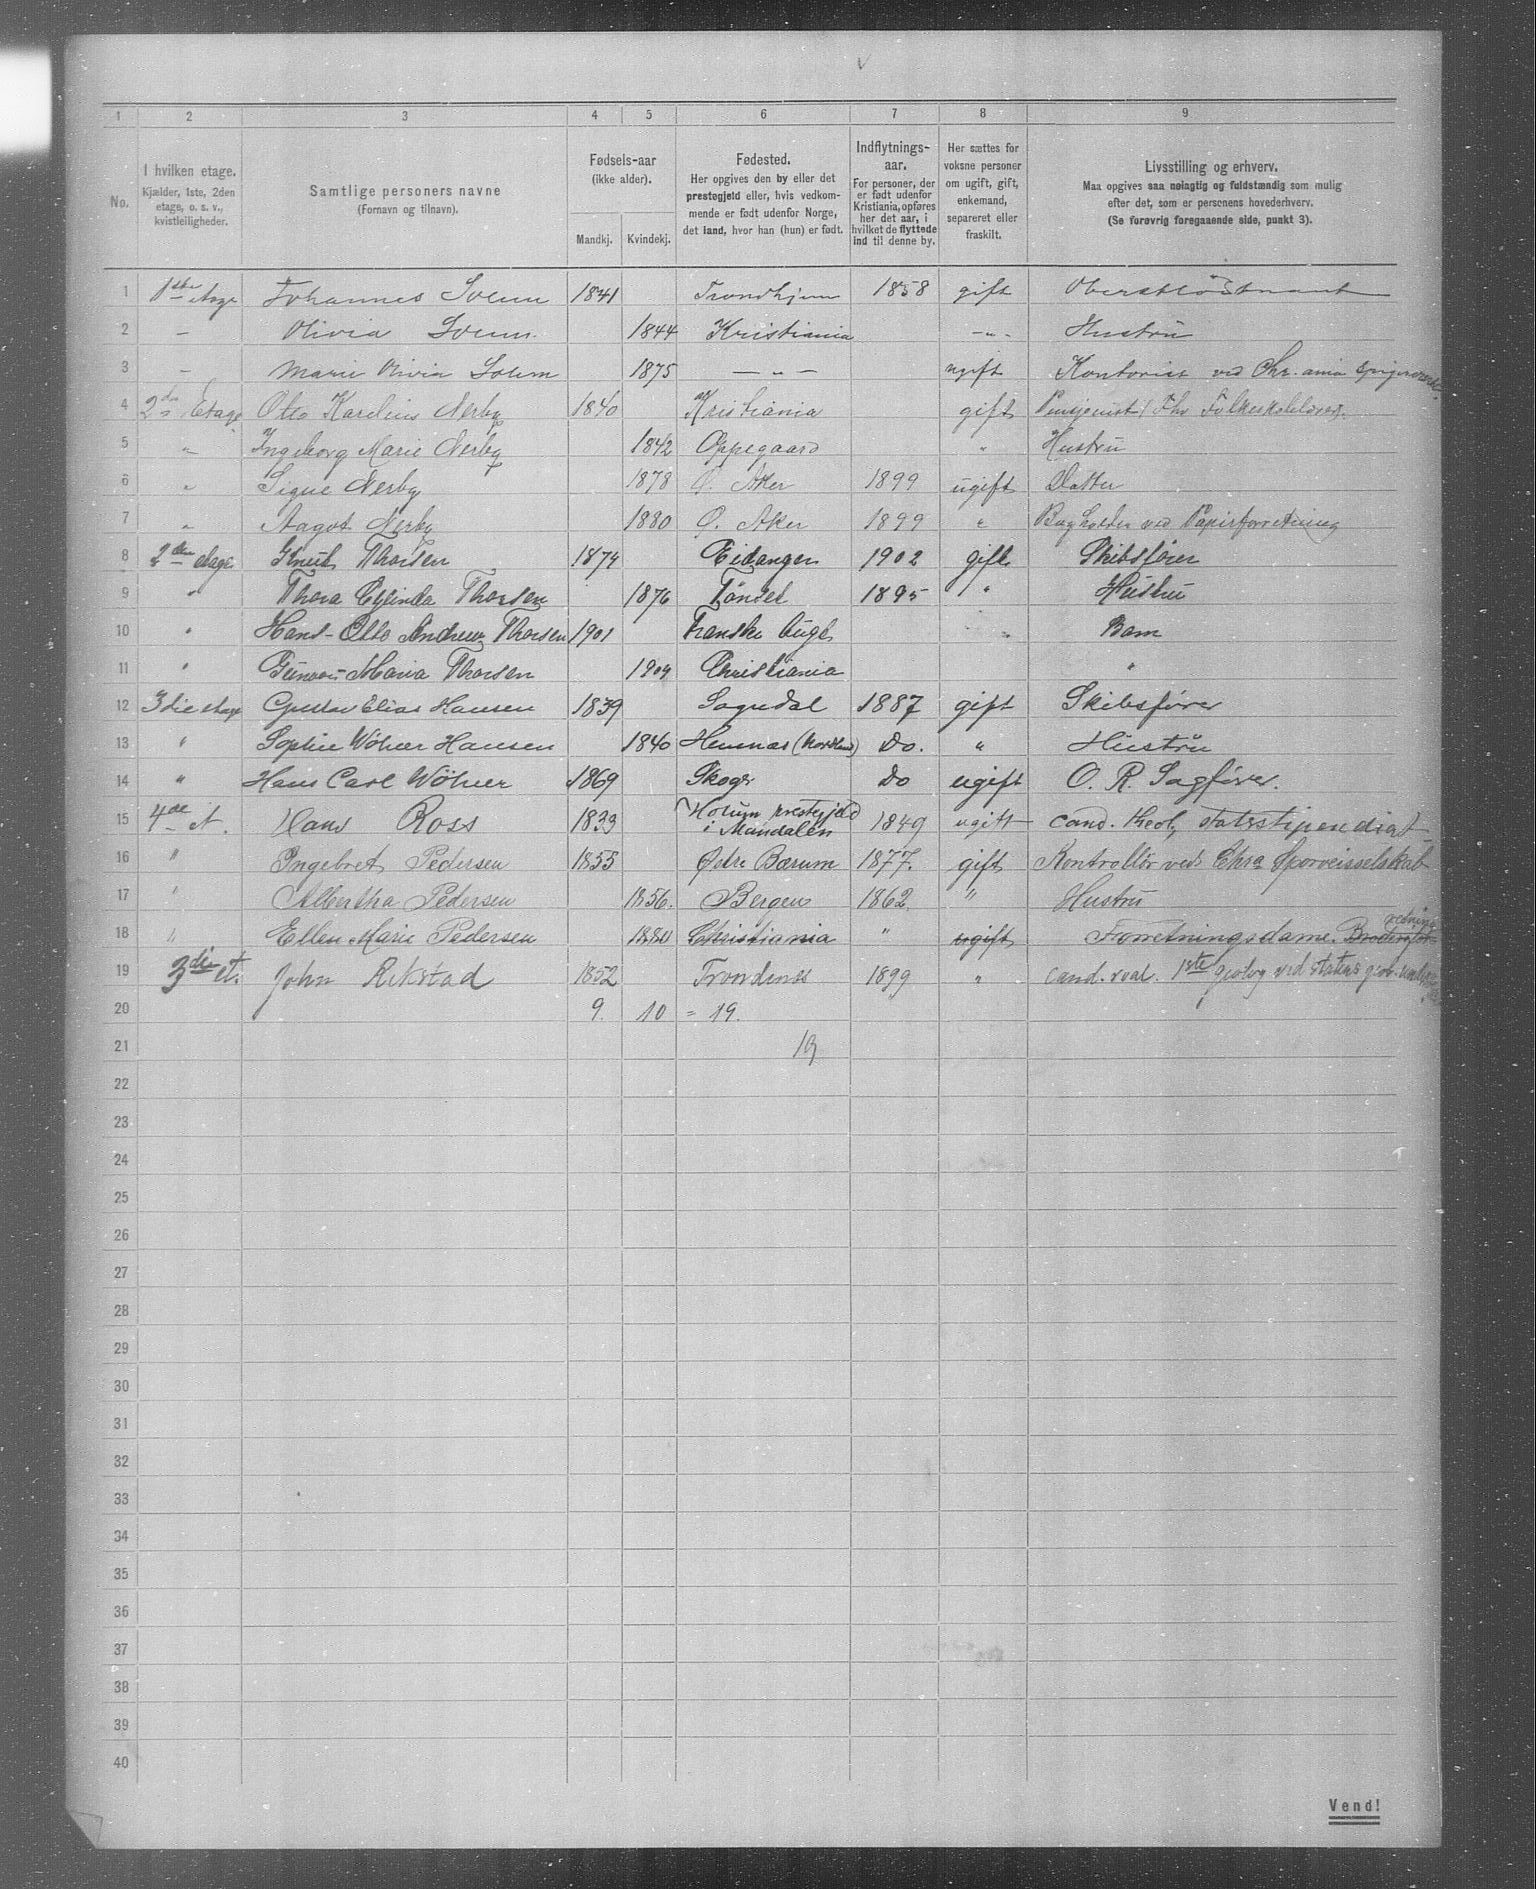 1 2 3 4 5 6 7 8 9
No.
I hvilken etage. Kjælder, 1ste, 2den etage, o. s. v., kvistleiligheder.
Samtlige personers navne (Fornavn og tilnavn).
Fødsels-aar (ikke alder). Mandkj. Kvindekj.
Fødested. Her opgives den by eller det prestegjeld eller, hvis vedkommende er født udenfor Norge, det land, hvor han (hun) er født.
Indflytnings-aar. For personer, der er født udenfor Kristiania, opføres her det aar, i hvilket de flyttede ind til denne by.
Her sættes for voksne personer om ugift, gift, enkemand, separeret eller fraskilt.
Livsstilling og erhverv. Maa opgives saa nøiagtig og fuldstændig som mulig efter det, som er personens hovederhverv. (Se forøvrig foregaaende side, punkt 3).
1 1ste Johannes Solem 1841 Trondhjem 1858 gift Oberstløitnant
2 – Olivia Solem 1844 Kristiania –„– Hustru
3 – Marie Olivia Solem 1875 –„– ugift Kontorist ved Chr.ania
4 2den Etage Otto Karelius Nerby 1840 Kristiania gift Pensjonist Fhv Folkeskolelærer.
5 „ Ingeborg Marie Nerby 1842 Oppegaard „ Hustru
6 „ Signe Nerby 1878 Ø. Aker 1899 ugift Datter
7 „ Aagot Nerby 1880 Ø. Aker 1899 „ Bogholder ved Papirforretning
8 2den etage Knut Thorsen 1874 Eidanger 1902 gift Skibsfører
9 „ Thora Thorsen 1876 Tønset 1895 „ Hustru
10 „ Hans-Otto Andreas Thorsen 1901 Barn
11 „ Gunvor-Maria Thorsen 1904 Christiania „
12 3die etage Gustav Elias Hansen 1839 Sogndal 1887 gift Skibsfører
13 „ Sophie Wølner Hansen 1840 Hemnæs (Nordland) Do. „ Hustru
14 „ Hans Carl Wølner 1869 Skoger Do ugift O. R. Sagfører.
15 4de et. Hans Ross 1833 Holum prestegjeld i Mandalen 1849 ugift cand. theol, statsstipendiat
16 „ Ingebret Pedersen 1855 Østre Bærum 1877. gift Kontrollør ved Chra Sporveisselskab
17 „ Albertha Pedersen 1856. Bergen 1862. „ Hustru
18 „ Ellen Marie Pedersen 1880 Christiania „ ugift Forretningsdame.
19 3die et. John Rekstad 1852 Trondenes 1899 „ cand. real. 1ste geolog ved statens
20 9. 10 = 19.
21 19
22
23
24
25
26
27
28
29
30
31
32
33
34
35
36
37
38
39
40
Vend!